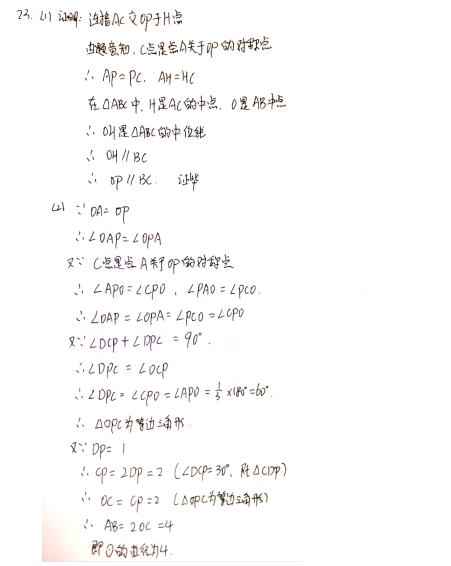 23. (1) 证明: 连接AC交OP于H点
由题意知, C点是点A关于OP的对称点
∴ AP=PC, AH=HC
在△ABC中, H是AC的中点, O是AB中点
∴ OH是△ABC的中位线
∴ OH∥BC
∴ OP∥BC. 证毕
(2) ∵ OA=OP
∴ ∠OAP=∠OPA
又∵ C点是点A关于OP的对称点
∴ ∠APO=∠CPO, ∠PAO=∠PCO.
∴ ∠OAP=∠OPA=∠PCO=∠CPO
又∵ ∠DCP+∠DPC=90°.
∴ ∠DPC=∠OCP
∴ ∠DPC=∠CPO=∠APO=1/3×180°=60°.
∴ △OPC为等边三角形.
又∵ DP=1
∴ CP=2DP=2 (∠DCP=30°, Rt△CDP)
∴ OC=CP=2 (△OPC为等边三角形)
∴ AB=2OC=4
即⊙的直径为4.